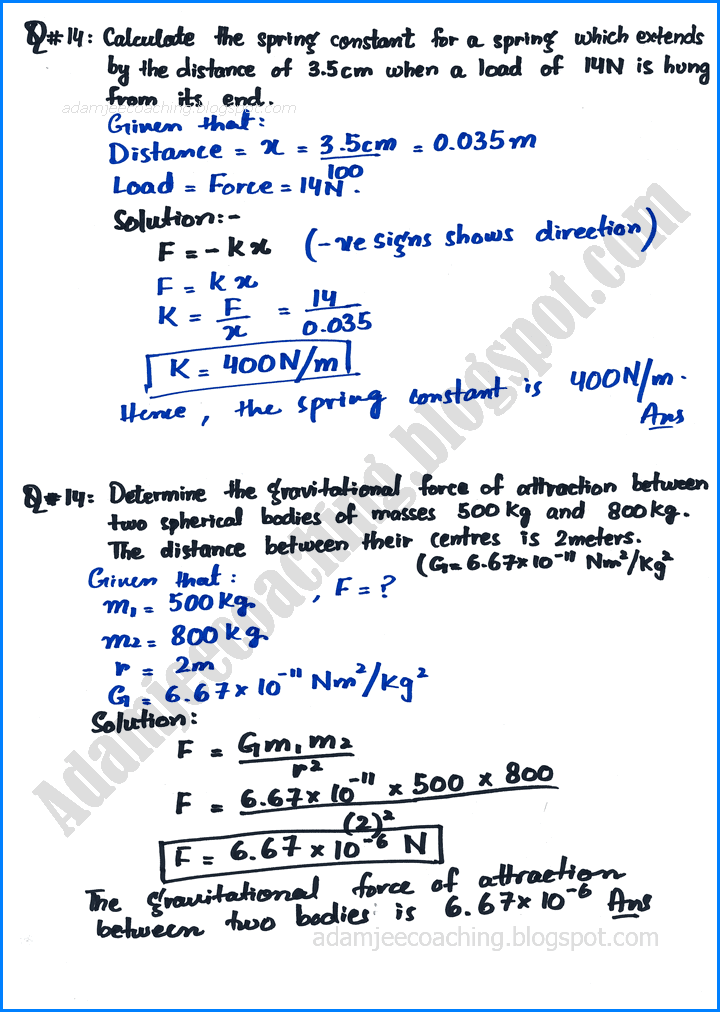 Q#14: Calculate the spring constant for a spring which extends
by the distance of 3.5cm when a load of 14N is hung
from its end.
adamjeecoaching.blogspot.com
Given that:
Distance = x = 3.5cm/100 = 0.035m
Load = Force = 14N.
Solution:-
F = -kx (-ve signs shows direction)
F = kx
K = F/x = 14/0.035
K = 400N/m
Hence, the spring constant is 400N/m.
Ans
Q#14: Determine the gravitational force of attraction between
two spherical bodies of masses 500kg and 800kg.
The distance between their centres is 2meters.
(G=6.67×10⁻¹¹ Nm²/Kg²
Given that:
m₁ = 500kg , F = ?
m₂ = 800kg
r = 2m
G = 6.67×10⁻¹¹ Nm²/Kg²
Solution:
F = Gm₁m₂/r²
F = 6.67×10⁻¹¹ × 500 × 800/(2)²
F = 6.67×10⁻⁶ N
The gravitational force of attraction
between two bodies is 6.67×10⁻⁶ Ans
adamjeecoaching.blogspot.com
Adamjeecoaching.blogspot.com